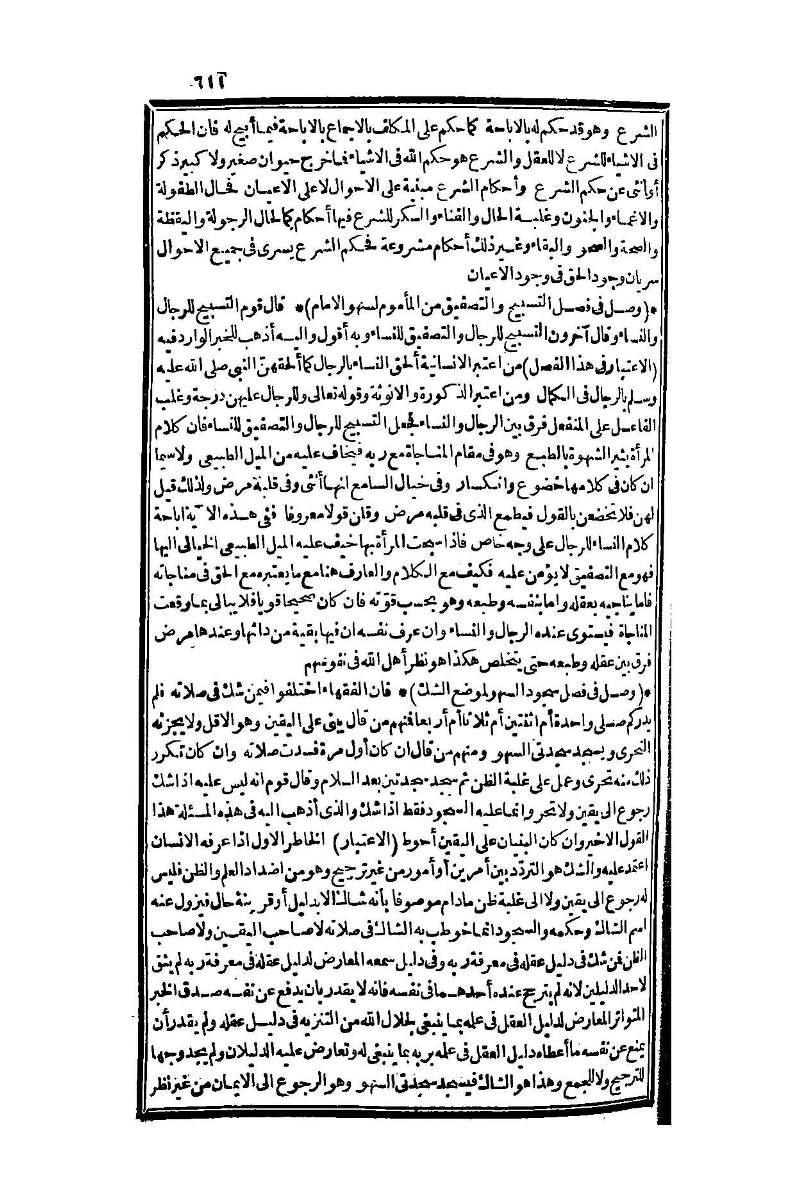 ٦١٢
الشرع وهو قد حكم له بالاباحة كما حكم على المكلف بالاجماع بالاباحة فيما أبيح له فان الحكم
فى الاشياء للشرع لا للعقل والشرع هو حكم الله فى الاشياء فما خرج حيوان صغير ولا كبير ذكر
أو أنثى عن حكم الشرع وأحكام الشرع مبنية على الاحوال لا على الاعيان فحال الطفولة
والاغماء والجنون وغلبة الحال والفناء والسكر للشرع فيها أحكام كما لحال الرجولة واليقظة
والصحة والصحو والبقاء وغير ذلك أحكام مشروعة فحكم الشرع يسرى فى جميع الاحوال
سريان وجود الحق فى وجود الاعيان
*(وصل فى فصل التسبيح والتصفيق من المأموم لسهو الامام)* قال قوم التسبيح للرجال
والنساء وقال آخرون التسبيح للرجال والتصفيق للنساء وبه أقول واليه أذهب للخبر الوارد فيه
(الاعتبار فى هذا الفصل) من اعتبر الانسانية ألحق النساء بالرجال كما ألحقهن النبى صلى الله عليه
وسلم بالرجال فى الكمال ومن اعتبر الذكورة والانوثة وقوله تعالى وللرجال عليهن درجة وغلب
الفاعل على المنفعل فرق بين الرجال والنساء فجعل التسبيح للرجال والتصفيق للنساء فان كلام
المرأة يثير الشهوة بالطبع وهو فى مقام المناجاة مع ربه فيخاف عليه من الميل الطبيعى ولاسيما
ان كان فى كلامها خضوع وانكسار وفى خيال السامع انها أنثى وفى قلبه مرض ولذلك قيل
لهن فلا تخضعن بالقول فيطمع الذى فى قلبه مرض وقلن قولا معروفا ففى هذه الآية اباحة
كلام النساء للرجال على وجه خاص فاذا سبحت المرأة بها خيف عليه الميل الطبيعى الخيالى اليها
فهو مع التصفيق لا يؤمن عليه فكيف مع الكلام والعارف هنا مع ما يعتبره مع الحق فى مناجاته
فاما يناجيه بعقله واما بنفسه وطبعه وهو بحسب قوته فان كان صحيحا قويا فلا يبالى بما وقعت
المناجاة فيستوى عنده الرجال والنساء وان عرف نفسه ان فيها بقية من دائها وعندها مرض
فرق بين عقله وطبعه حتى يتخلص هكذا هو نظر أهل الله فى نفوسهم
*(وصل فى فصل سجود السهو لموضع الشك)* فان الفقهاء اختلفوا فيمن شك فى صلاته فلم
يدركم صلى واحدة أم اثنتين أم ثلاثا أم أربعا فمنهم من قال يبنى على اليقين وهو الاقل ولا يجزئه
التحرى ويسجد سجدتى السهو ومنهم من قال ان كان أول مرة فسدت صلاته وان كان تكرر
ذلك منه تحرى وعمل على غلبة الظن ثم سجد سجدتين بعد السلام وقال قوم انه ليس عليه اذا شك
رجوع الى يقين ولا تحر وانما عليه السجود فقط اذا شك والذى أذهب اليه فى هذه المسئلة هذا
القول الاخير وان كان البنيان على اليقين أحوط (الاعتبار) الخاطر الاول اذا عرفه الانسان
اعتمد عليه والشك هو التردد بين أمرين أو أمور من غير ترجيح وهو من اضداد العلم والظن فليس
له رجوع الى يقين ولا الى غلبة ظن مادام موصوفا بأنه شاك الا بدليل أو قرينة حال فيزول عنه
اسم الشاك وحكمه والسجود انما خوطب به الشاك فى صلاته لا صاحب اليقين ولا صاحب
الظن فمن شك فى دليل عقله فى معرفة ربه وفى دليل سمعه المعارض لدليل عقله فى معرفة ربه لم يثق
لاحد الدليلين لانه لم يترجح عنده أحدهما فى نفسه فانه لا يقدر بان يدفع عن نفسه صدق الخبر
المتواتر المعارض لدليل العقل فى علمه بما ينبغى لجلال الله من التنزيه فى دليل عقله ولم يقدر أن
يمنع عن نفسه ما أعطاه دليل العقل فى علمه بربه بما ينبغى له وتعارض عليه الدليلان ولم يجد وجها
للترجيح ولا للجمع وهذا هو الشاك فيسجد سجدتى السهو وهو الرجوع الى الايمان من غير نظر